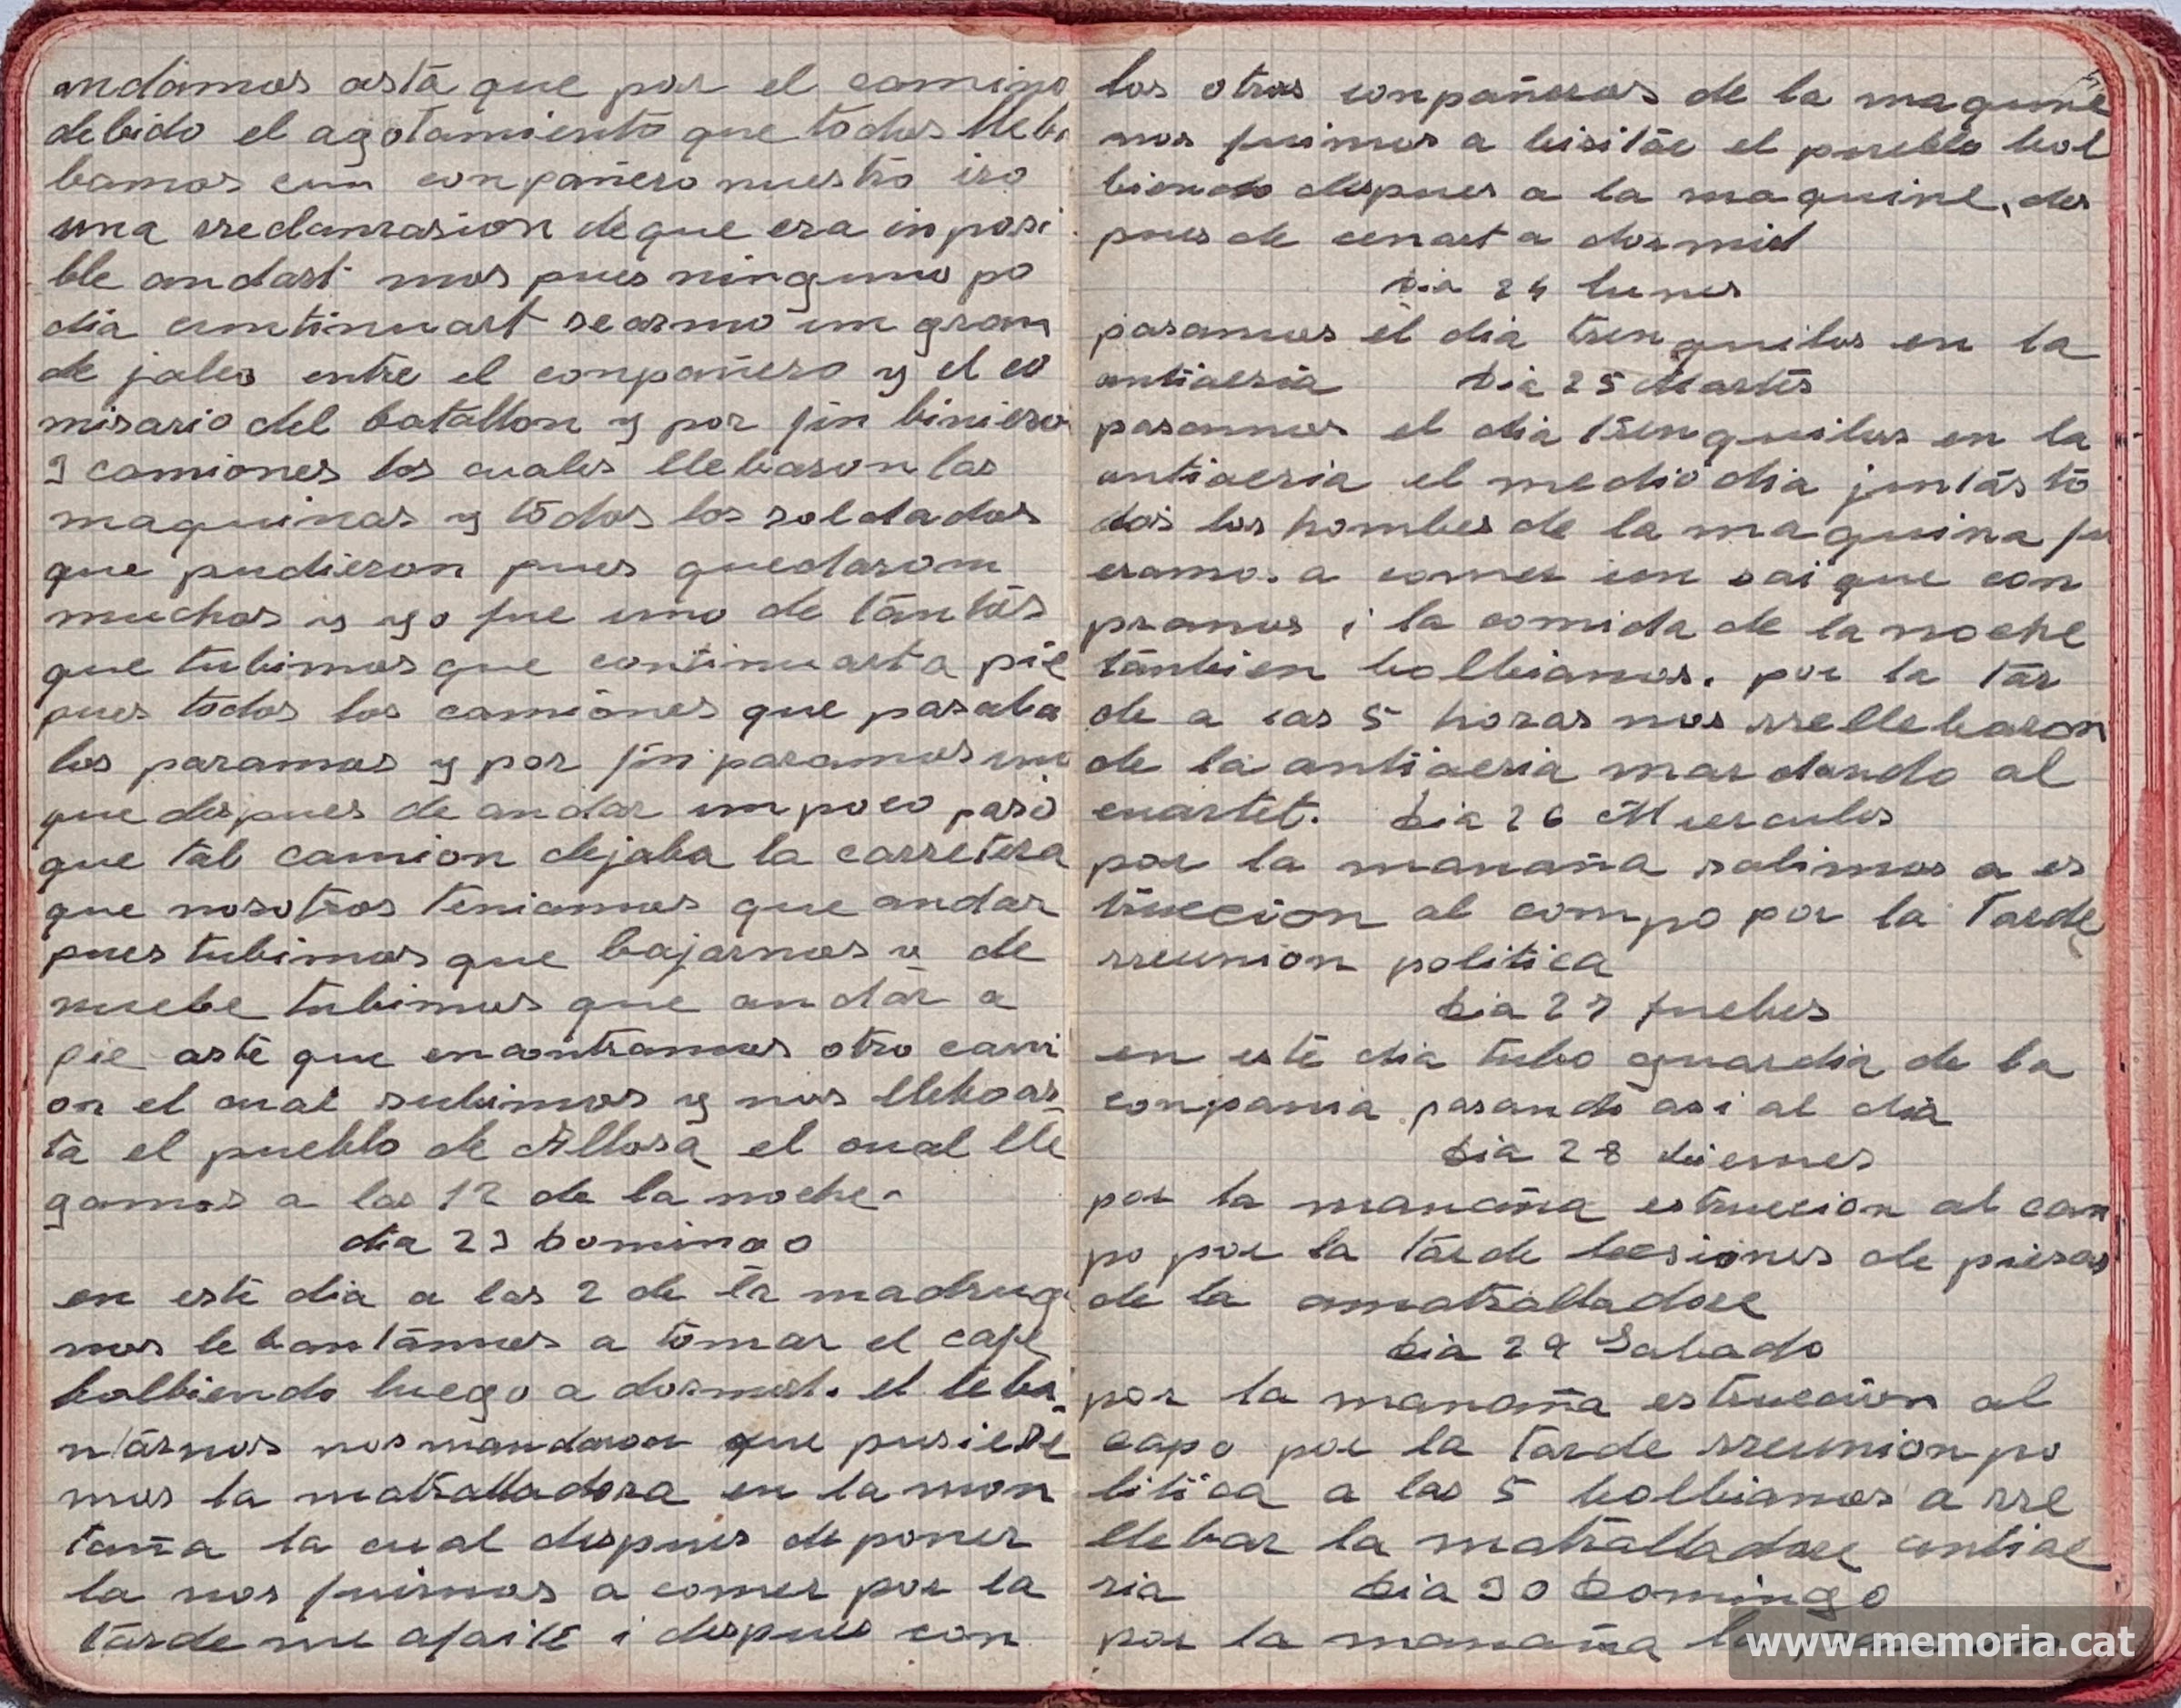 andamos asta que por el camino
debido el agotamiento que todos lleba
bamos cun conpañero nuestro iso
una rreclamasion de que era inposi
ble andart mos pues ninguno po
dia cuntinuart se armo un gran
de jaleo entre el conpañero y el co
misario del batallon y por fin biniero
3 camiones los cuales llebaron las
maquinas y todos los soldados
que pudieron pues quedarom
muchos y yo fue uno de tantos
que tubimos que continuart a pie
pues todos los camiones que pasaba
los paramos y por fin paramos uno
que despues de andar un poco paso
que tal camion dejaba la carretera
que nosotros teniamos que andar
pues tubimos que bajarnos y de
nuebe tubimos que andar a
pie aste que encontramos otro cami
on el cual subimos y nos llebo as
ta el pueblo de Allosa el cual lle
gamos a las 12 de la noche.
dia 23 Domingo
en este dia a las 2 de la madruga
nos lebantamos a tomar el cafe
bolbiendo luego a dormit. el leba
ntarnos nos mandaron que pusiere
mos la matralladora en la mon
taña la cual despues de poner
la nos fuimos a comer por la
tarde me afaite i despues con
los otros conpañeros de la maquine
nos fuimos a bisitar el pueblo bol
biendo despues a la maquine, des
pues de cenart a dormid
Dia 24 lunes
pasamos el dia trenquilos en la
antiaeria Dia 25 Martes
pasamos el dia trenquilos en la
antiaeria el mediodia juntas to
dos los hombes de la maquina fu
eramos a comer un oai que con
pramos i la comida de la noche
tanbien bolbiamos. por la tar
de a las 5 horas nos rrellebaron
de la antiaeria mardando al
cuartet. Dia 26 Miercules
por la manaña salimos a es
truccion al compo por la tarde
rreunion politica
Dia 27 juebes
en este dia tubo guardia de la
conpania pasando asi al dia
Dia 28 biernes
por la manaña estruccion al can
po por la tarde lecsiones de piesas
de la amatralladore
Dia 29 Sabado
por la manaña estruccion al
capo por la tarde rreunion po
litica a las 5 bolbiamos a rre
llebar la matralladore antiae
ria Dia 30 Domingo
por la manaña
www.memoria.cat